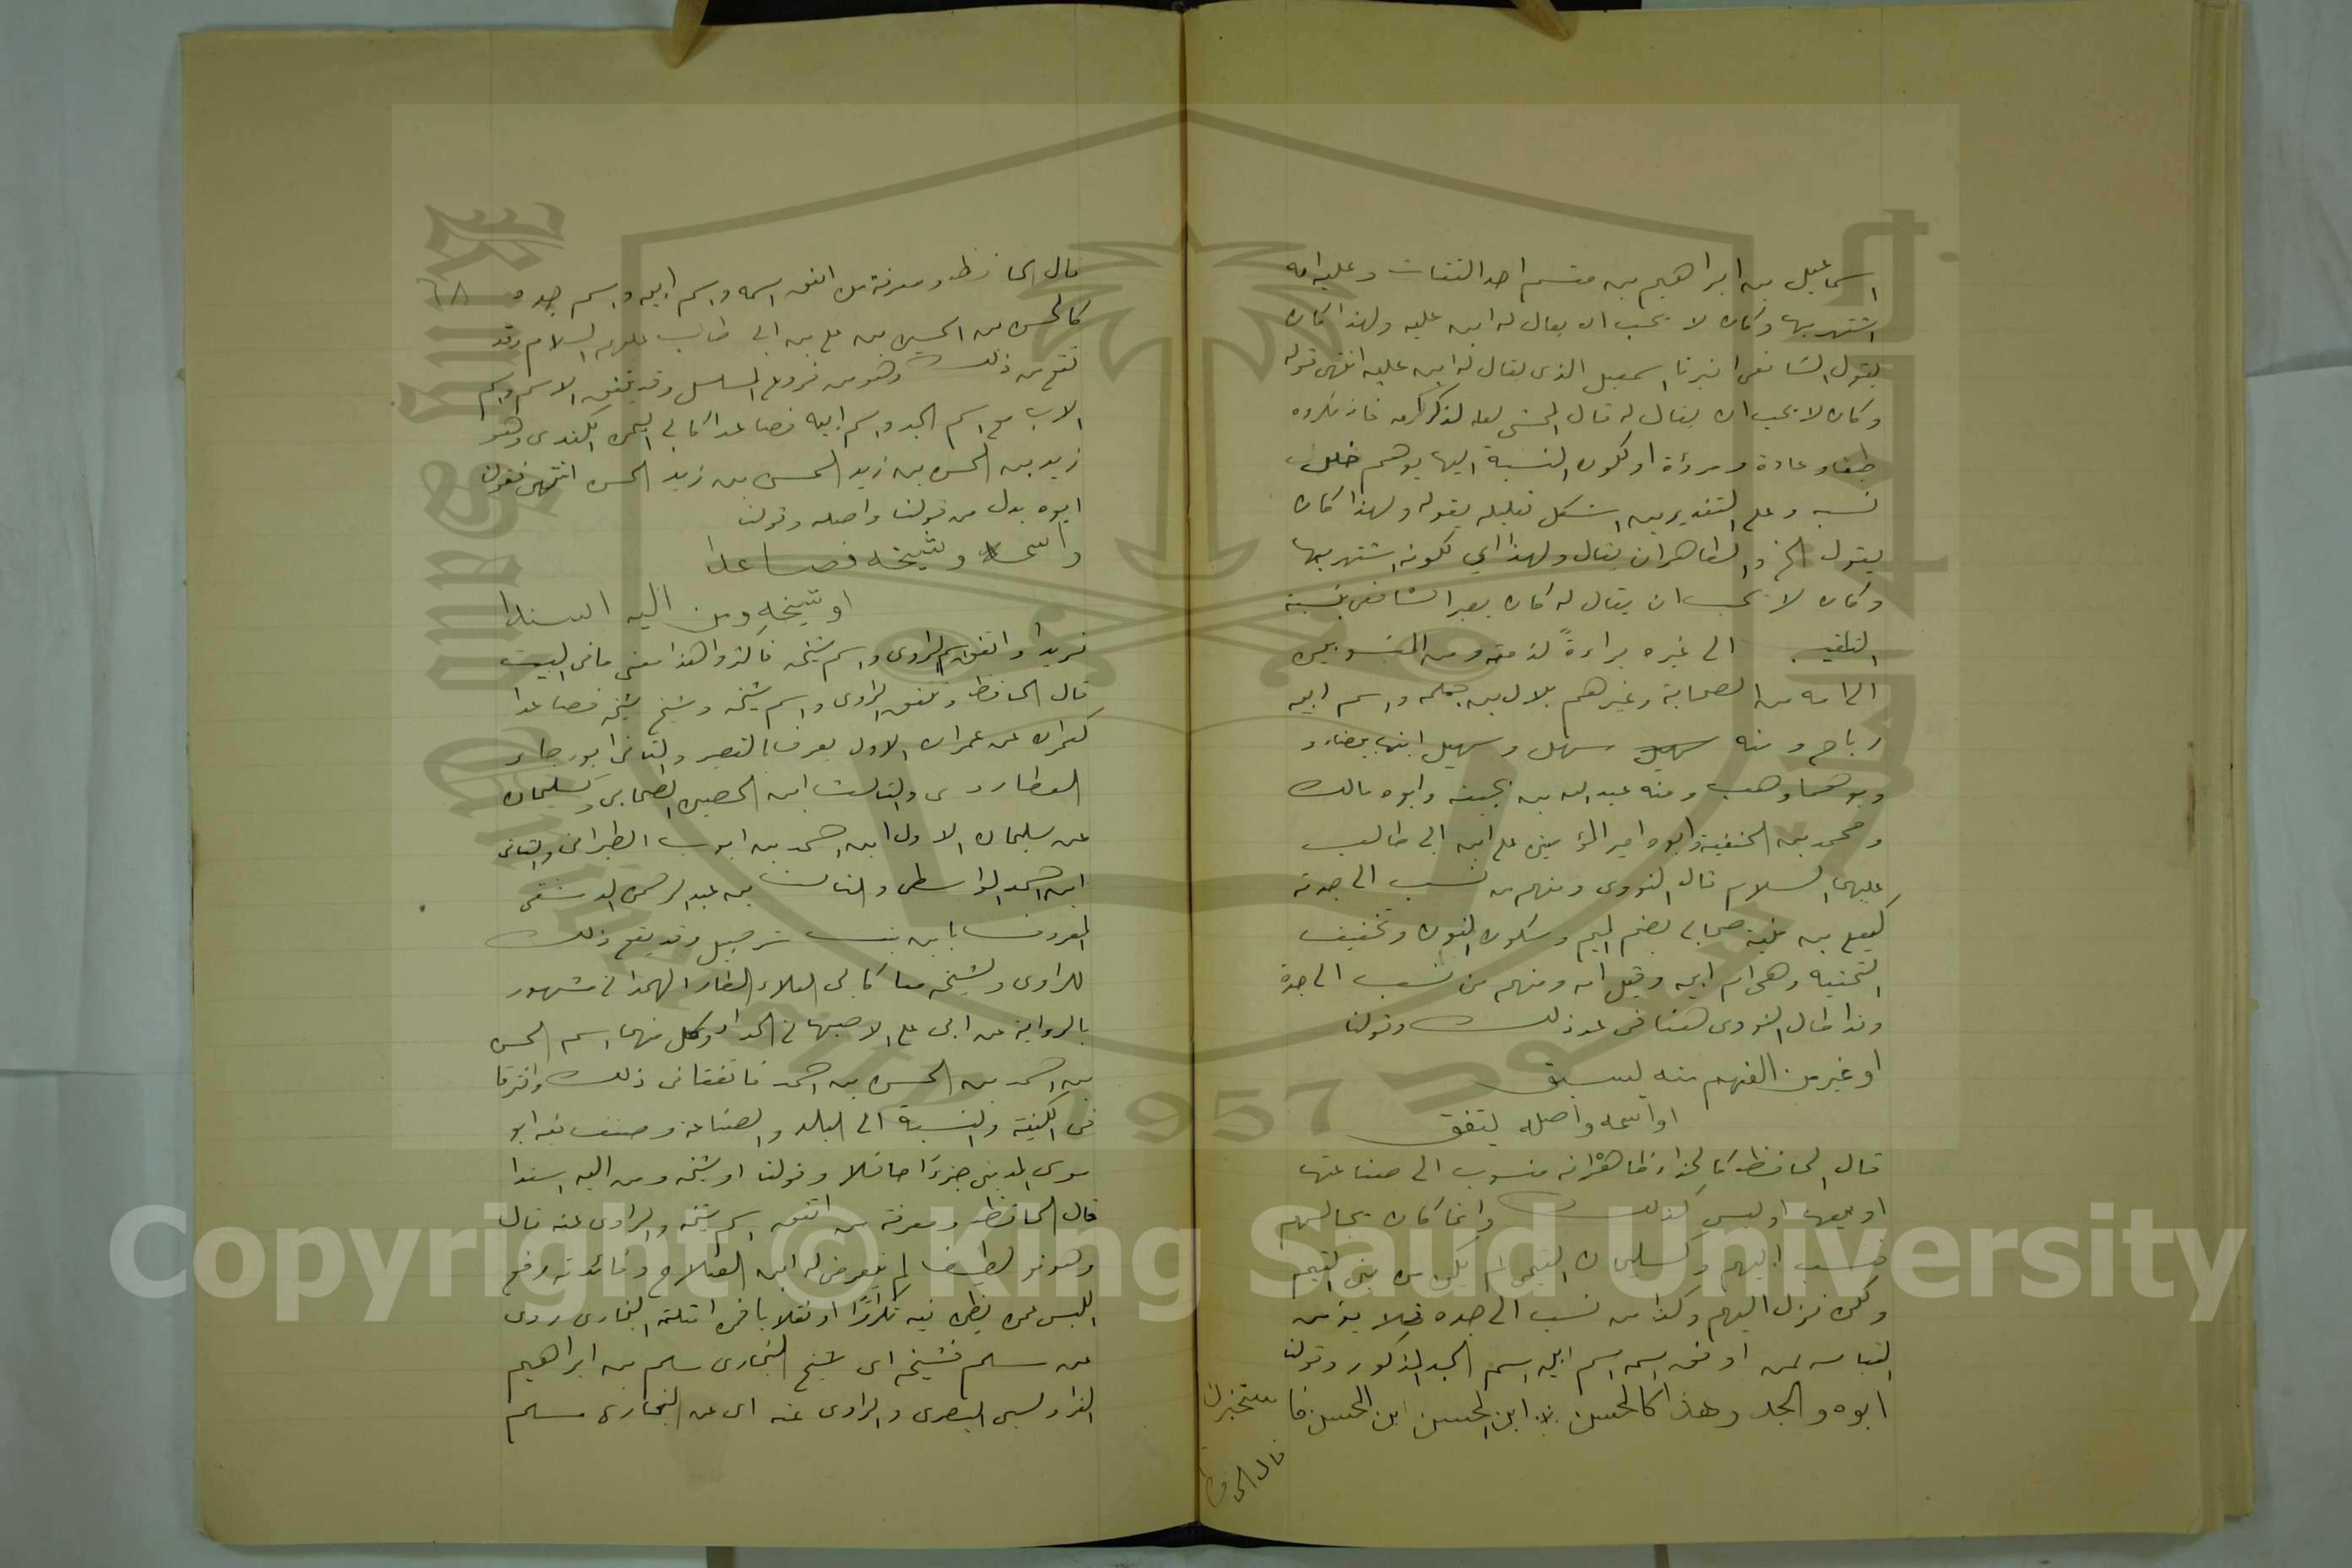 اسماعيل بن ابراهيم بن مقسم احد الثقات وعليه امه
اشتهر بها وكان لا يحب ان يقال له ابن عليه ولهذا كان
يقول الشافعى اخبرنا اسمعيل الذى يقال له ابن عليه انتهى قوله
وكان لا يحب ان يقال له قال المحشى لعله لذكر امه فانه مكروه
طبعا وعادة ومروءة او لكون النسبة اليها يوهم خلل
نسبه وعلى التقديرين اشكل تعليله بقوله ولهذا كان
يقول الخ والظاهر ان يقال ولهذا اي لكونه اشتهر بها
وكان لا يحب ان يقال له كان يعبر الشافعى بنسبة
التلقيب الى غيره براءةً لذمته ومن المنسوبين
الى امه من الصحابة وغيرهم بلال بن حمامه واسم ابيه
رباح ومنه سهل وسهيل ابنا بيضاء و
وابوهما وهب ومنه عبد الله بن بحينه وابوه مالك
ومحمد بن الحنفية وابوه امير المؤمنين على ابن ابى طالب
عليهما السلام قال النووى ومنهم من نسب الى جدته
كيعلى بن منية صحابى بضم الميم وسكون النون وتخفيف
التحتيه وهى ام ابيه وقيل امه ومنهم من نسب الى جده
وقد اطال النووى هنا فى عد ذلك وقولنا
او غير من الفهم منه يسبق
او اسمه واصله يتفق
قال الحافظ كالحذاء ظاهره انه منسوب الى صناعتها
او بيعها وليس كذلك وانما كان يجالسهم
فنسب اليهم وكسليمان التيمى لم يكن من بنى التيم
ولكن نزل اليهم وكذا من نسب الى جده فلا يؤمن
التباسه بمن اوفق اسمه اسم ابيه اسم الجد المذكور وقولنا
ابوه والجد وهذا كالحسن ابن الحسن ابن الحسن فا ستخبرن
قال الحافظ
قال الحافظ ومعرفة من اتفق اسمه واسم ابيه واسم جده
٦٨
كالحسن بن الحسن بن على بن ابى طالب عليهم السلام وقد
يقع من ذلك وهو من فروع المسلسل وقد يتفق الاسم واسم
الاب مع اسم الجد واسم ابيه فصاعدا كابى اليمن الكندى وهو
زيد بن الحسن بن زيد الحسن بن زيد الحسن انتهى فقولنا
ابوه بدل من قولنا واصله وقولنا
واسمه وشيخه فصاعدا
او شيخه ومن اليه اسندا
نريد او اتفق اسم الراوى واسم شيخه فاكثر وهذا معنى ما فى البيت
قال الحافظ ويتفق الراوى واسم شيخه وشيخ شيخه فصاعدا
كعمران عن عمران الاول يعرف بالقصير والثانى ابو رجاء
العطاردى والثالث ابن الحصين الصحابى وكسليمان
عن سليمان الاول ابن احمد بن ايوب الطبرانى والثانى
ابن احمد الواسطى والثالث بن عبد الرحمن الدمشقى
المعروف بابن بنت شرحبيل وقد يقع ذلك
للراوى ولشيخه معا كابى العلاء العطار الهمذانى مشهور
بالرواية عن ابى على الاصبهانى الحداد وكل منهما اسمه الحسن
بن احمد بن الحسن بن احمد فاتفقا فى ذلك وافترقا
فى الكنية والنسبة الى البلد والصناعة وصنف فيه ابو
موسى المدينى جزءًا حافلا وقولنا او شيخه ومن اليه اسندا
قال الحافظ ومعرفة من اتفق اسم شيخه والراوى عنه قال
وهو نوع لطيف لم يتعرض له ابن الصلاح وفائدته رفع
اللبس عمن يظن فيه تكرارًا او انقلابا فمن امثلته البخارى روى
عن مسلم فشيخه اى شيخ البخارى مسلم بن ابراهيم
الفراديسى البصرى والراوى عنه اى عن البخارى مسلم
Copyright © King Saud University
1957